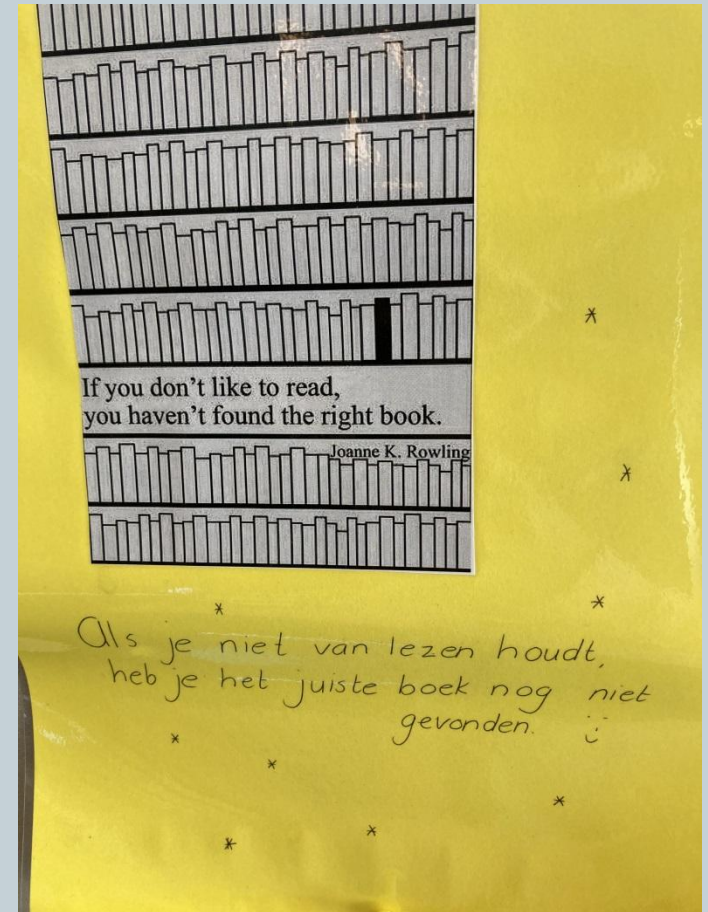 If you don't like to read,
you haven't found the right book.
Joanne K. Rowling
Als je niet van lezen houdt,
heb je het juiste boek nog niet
gevonden. :)